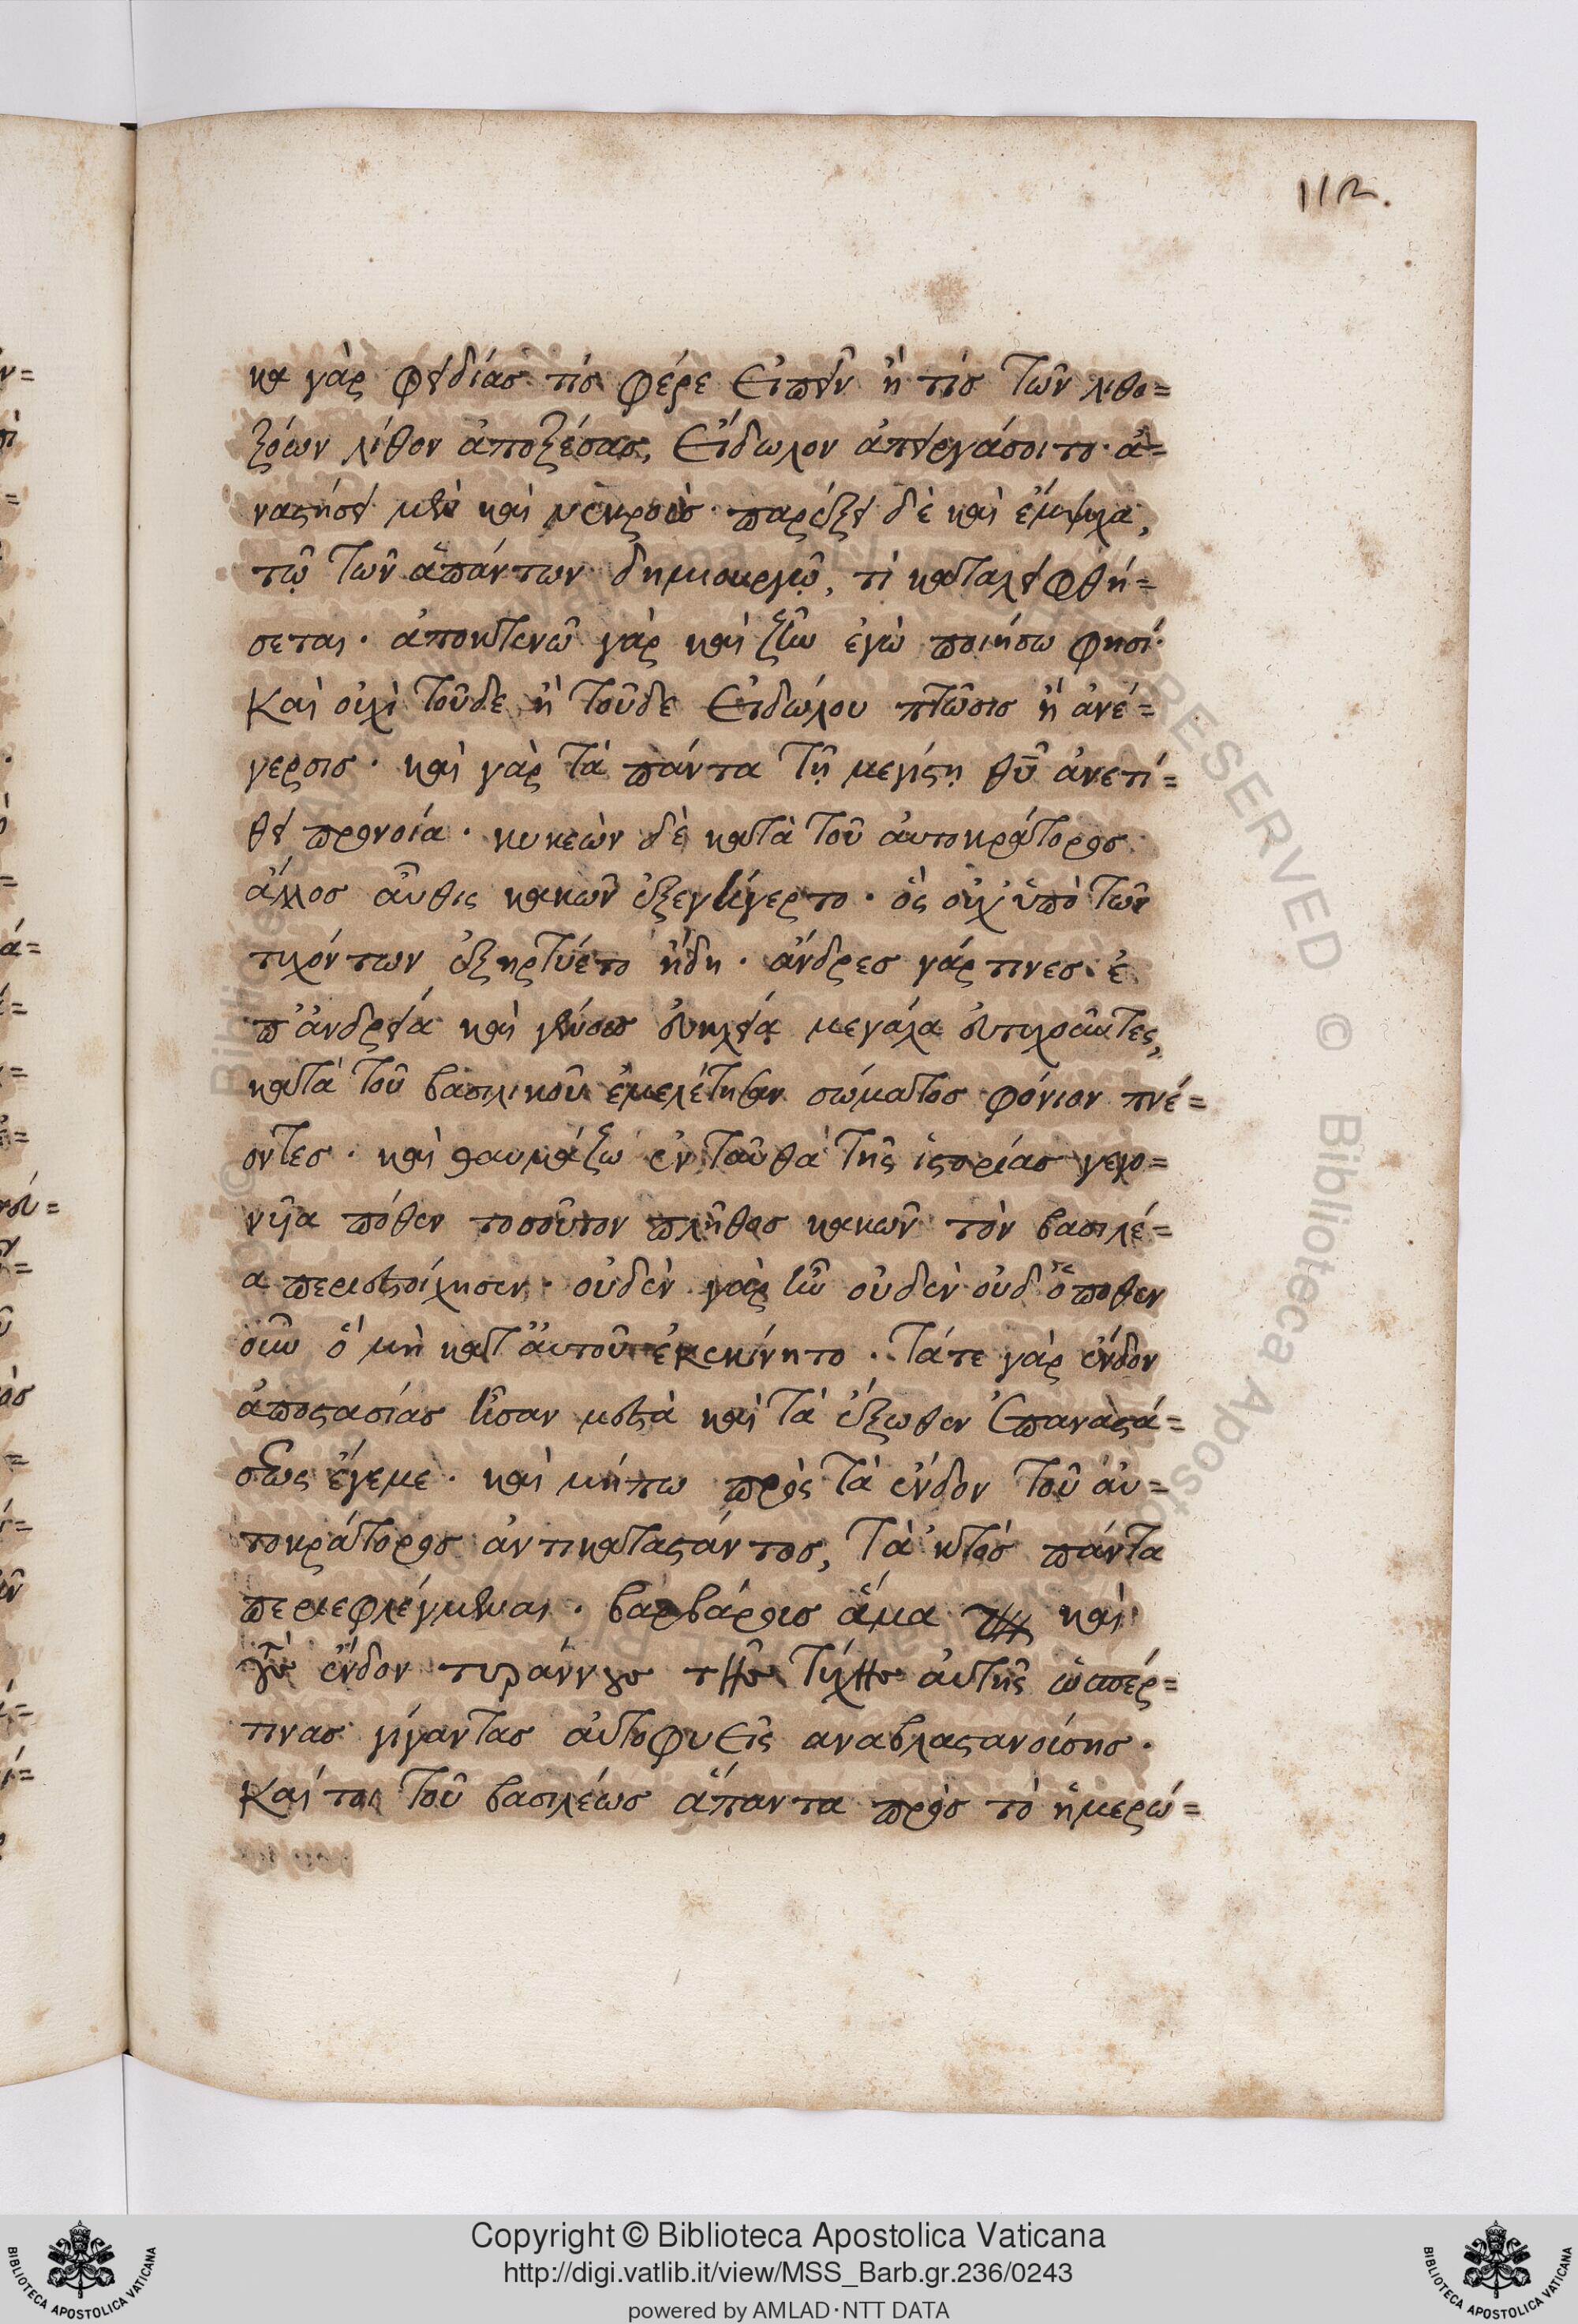 112.
κα γὰρ φειδίας τίς φέρε εἰπεῖν ἢ τίς τῶν λιθο=
ξόων λίθον ἀποξέσας, εἴδωλον ἀπειργάσοιτο· ἀ=
ναστήσει μὲν καὶ νεκροὺς παρέξει δὲ καὶ ἔμψυχα,
τῷ τῶν ἁπάντων δημιουργῷ, τί καταλειφθή=
σεται· ἀποκτενῶ γὰρ καὶ ζῆν ἐγὼ ποιήσω φησί·
Καὶ οὐχὶ τοῦδε ἢ τοῦδε εἰδώλου πτῶσις ἢ ἀνέ=
γερσις· καὶ γὰρ τὰ πάντα τῇ μεγίστῃ θῦ ἀνετί=
θει προνοία· κυκεὼν δὲ κατὰ τοῦ αὐτοκράτορος
ἄλλος αὖθις κακῶν ἐξεγήγερτο· ὃς οὐχ ὑπὸ τῶν
τυχόντων ἐξηρτύετο ἤδη· ἄνδρες γάρ τινες ἐ
π' ἀνδρεία καὶ γένους μεγάλα
κατὰ τοῦ βασιλικοῦ ἐμελέτησαν σώματος φόνιον πνέ=
οντες· καὶ θαυμάζω ἐνταῦθα τῆς ἱστορίας γεγο=
νυῖα πόθεν τοσοῦτον πλῆθος κακῶν τὸν βασιλέ=
α περιεστοίχησεν· οὐδὲν γὰρ ἦν οὐδὲν οὐδ' ὅποθεν
οὖν ὃ μὴ κατ' αὐτοῦ ἐκεκίνητο· τά τε γὰρ ἔνδον
ἀποστασίας ἦσαν μεστὰ καὶ τὰ ἔξωθεν ἐπαναστά=
σεως ἔγεμε· καὶ μήπω πρὸς τὰ ἔνδον τοῦ αὐ=
τοκράτορος ἀντικαταστάντος, τὰ ἐκτὸς πάντα
περιεφλέγμεναι· βαρβάροις ἅμα καὶ
ἔνδον τυράννους τῆς τύχης αὐτῆς ὥσπέρ=
τινας γίγαντας αὐτοφυεῖς αναβλαστανούσης·
Καί τοι τοῦ βασιλέως ἅπαντα πρὸς τὸ ἡμερώ=
© Biblioteca Apostolica Vaticana
Copyright © Biblioteca Apostolica Vaticana
http://digi.vatlib.it/view/MSS_Barb.gr.236/0243
powered by AMLAD·NTT DATA
BIBLIOTECA APOSTOLICA VATICANA
BIBLIOTECA APOSTOLICA VATICANA